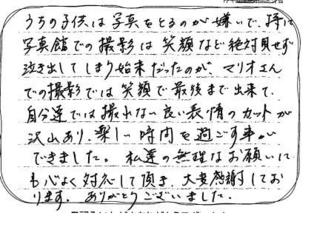 うちの子供は写真をとるのが嫌いで、特に
写真館での撮影は笑顔など絶対見せず
泣き出してしまう始末だったのが、マリオさん
での撮影では笑顔で最後まで出来て、
自分達では撮れない良い表情のカットが
沢山あり、楽しい時間を過ごす事が
できました。私達の無理なお願いに
も心よく対応して頂き、大変感謝してお
ります。ありがとうございました。